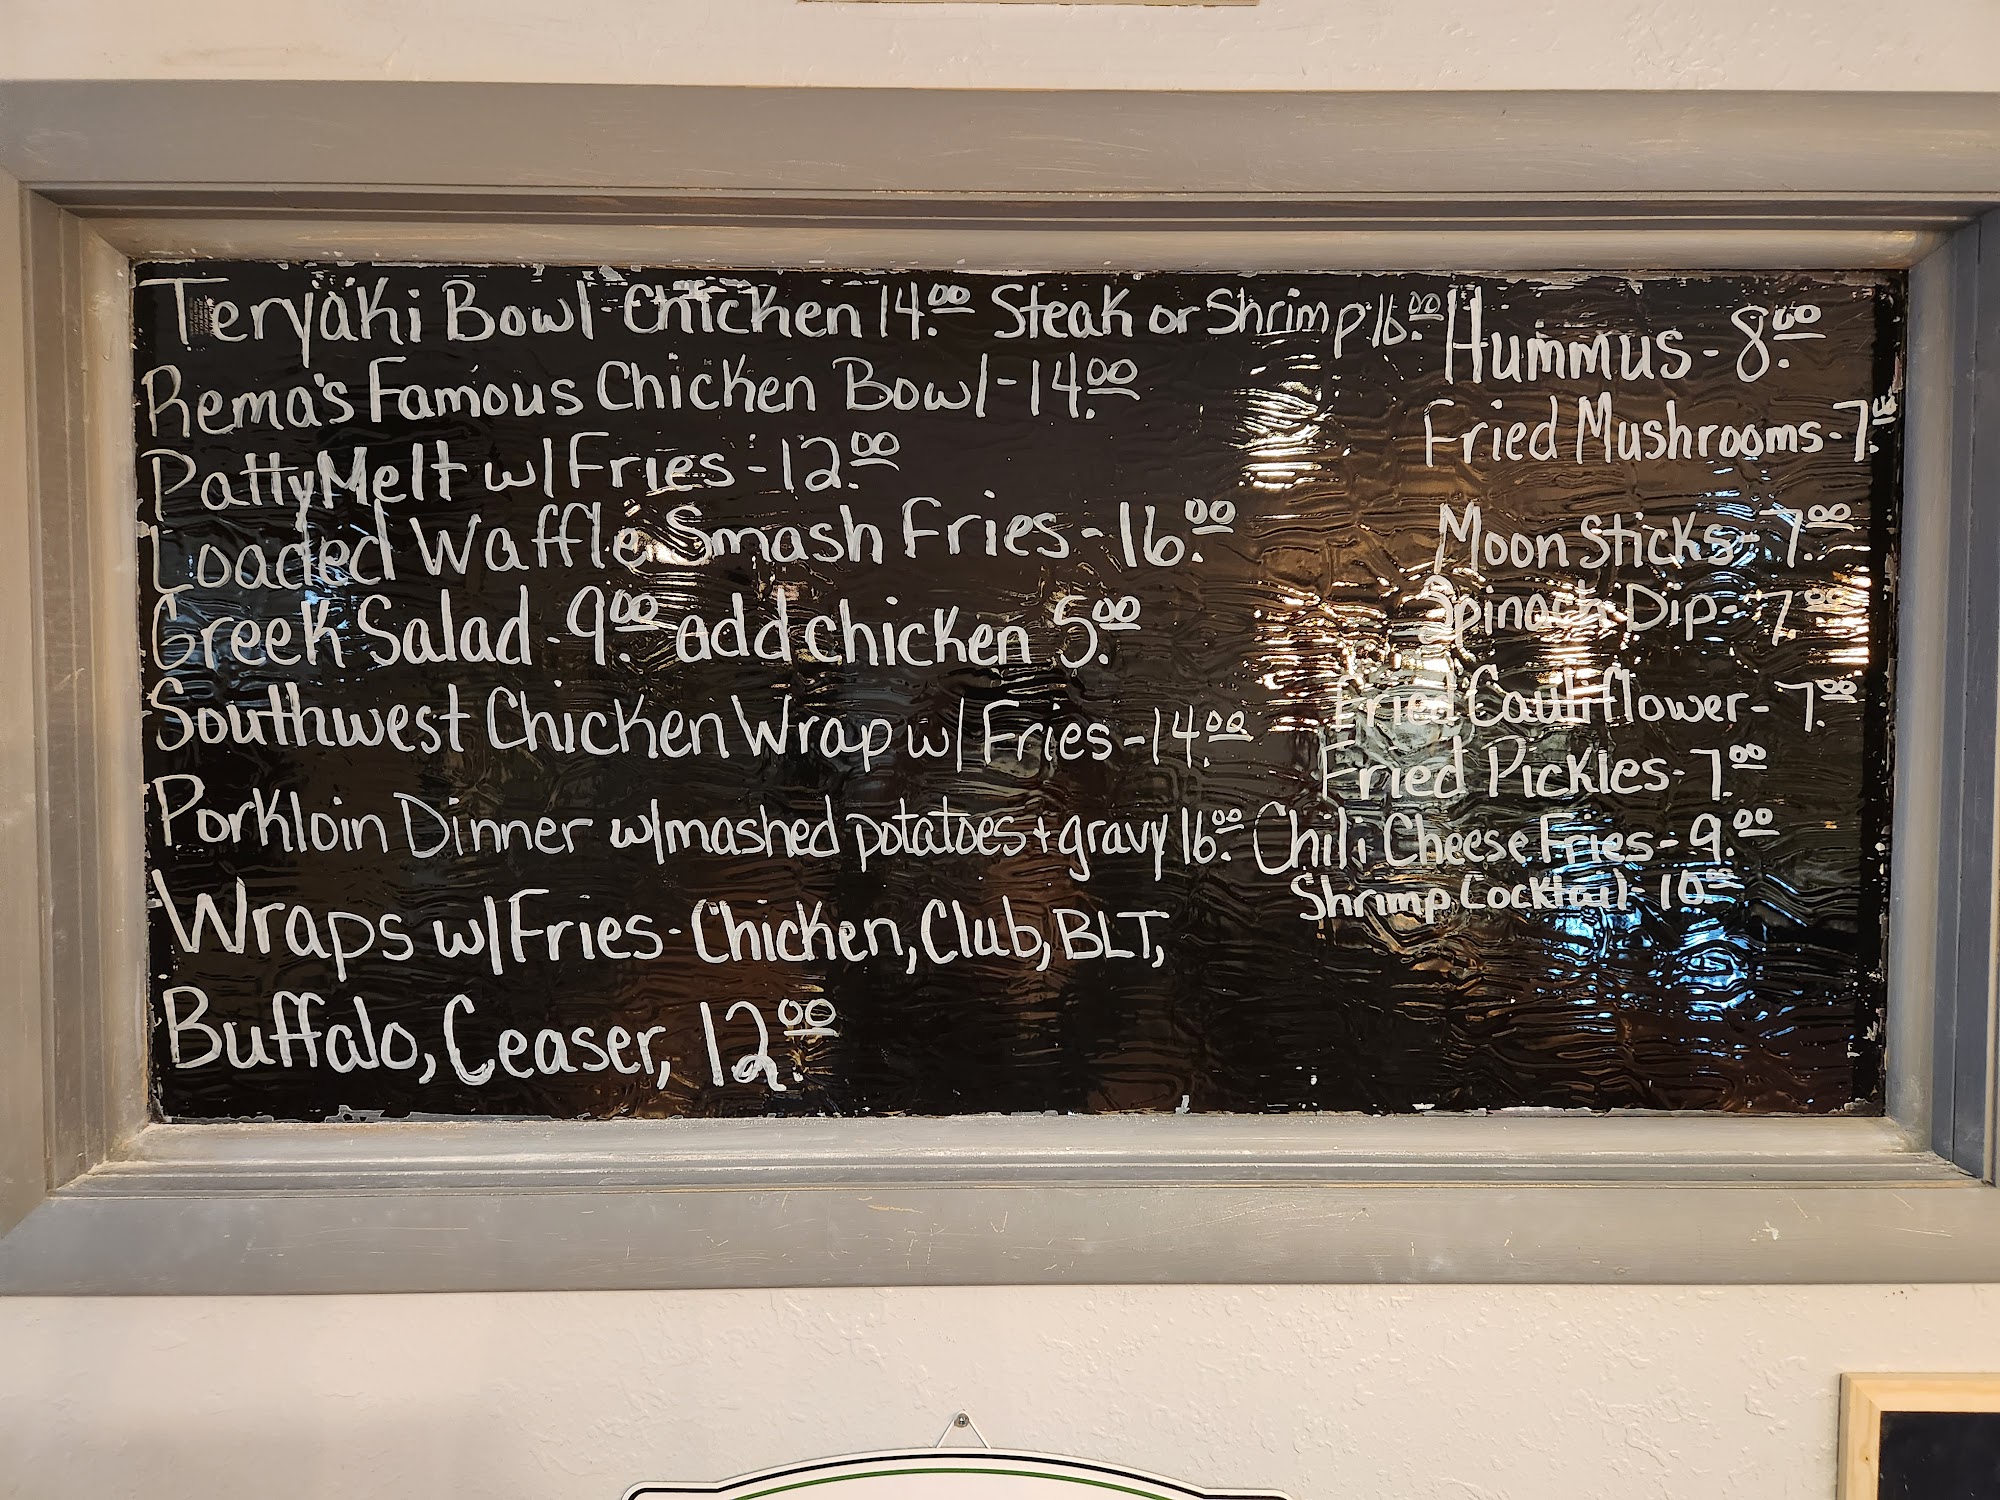 Teryaki Bowl-Chicken 14.00 Steak or Shrimp 16.00
Rema's Famous Chicken Bowl-14.00
Patty Melt w/Fries-12.00
Loaded Waffle Smash Fries-16.00
Greek Salad-9.00 add chicken 5.00
Southwest Chicken Wrap w/Fries-14.00
Porkloin Dinner w/mashed potatoes + gravy 16.00
Wraps w/Fries-Chicken, Club, BLT,
Buffalo, Ceaser, 12.00
Hummus-8.00
Fried Mushrooms-7.00
Moon Sticks-7.00
Spinach Dip-7.00
Fried Cauliflower-7.00
Fried Pickles-7.00
Chili Cheese Fries-9.00
Shrimp Cocktail-10.00